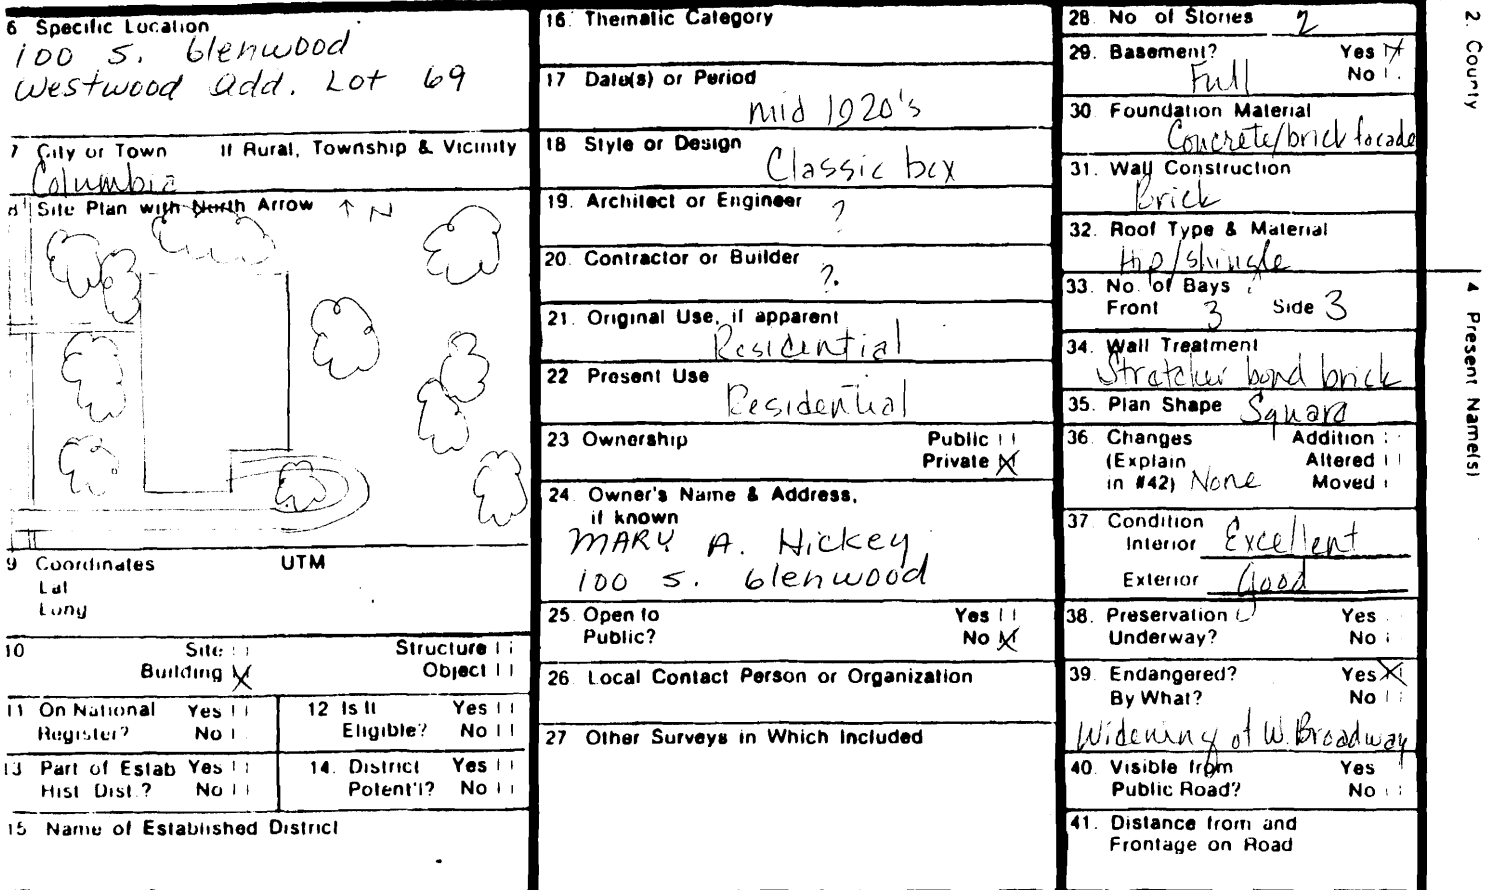 6 Specific Location
100 S. Glenwood
Westwood Add. Lot 69
7 City or Town If Rural, Township & Vicinity
Columbia
8 Site Plan with North Arrow ↑ N
9 Coordinates UTM
Lat
Long
10 Site
Structure
Building X
Object
11 On National Register? Yes No
12 Is It Eligible? Yes No
13 Part of Estab Hist Dist.? Yes No
14. District Potent'l? Yes No
15 Name of Established District
16. Thematic Category
17 Date(s) or Period
mid 1920's
18 Style or Design
Classic box
19. Architect or Engineer
?
20. Contractor or Builder
?.
21. Original Use, if apparent
Residential
22 Present Use
Residential
23 Ownership Public
Private X
24. Owner's Name & Address,
if known
MARY A. Hickey
100 S. Glenwood
25. Open to Yes
Public? No X
26. Local Contact Person or Organization
27 Other Surveys in Which Included
28. No of Stories 2
29. Basement? Yes X
Full No
30. Foundation Material
Concrete/brick facade
31. Wall Construction
Brick
32. Roof Type & Material
Hip/shingle
33. No. of Bays
Front 3 Side 3
34. Wall Treatment
Stretcher bond brick
35. Plan Shape Square
36. Changes Addition
(Explain Altered
in #42) None Moved
37. Condition
Interior Excellent
Exterior Good
38. Preservation Yes
Underway? No
39. Endangered? Yes X
By What? No
Widening of W. Broadway
40. Visible from Yes
Public Road? No
41. Distance from and
Frontage on Road
2. County
4 Present Name(s)